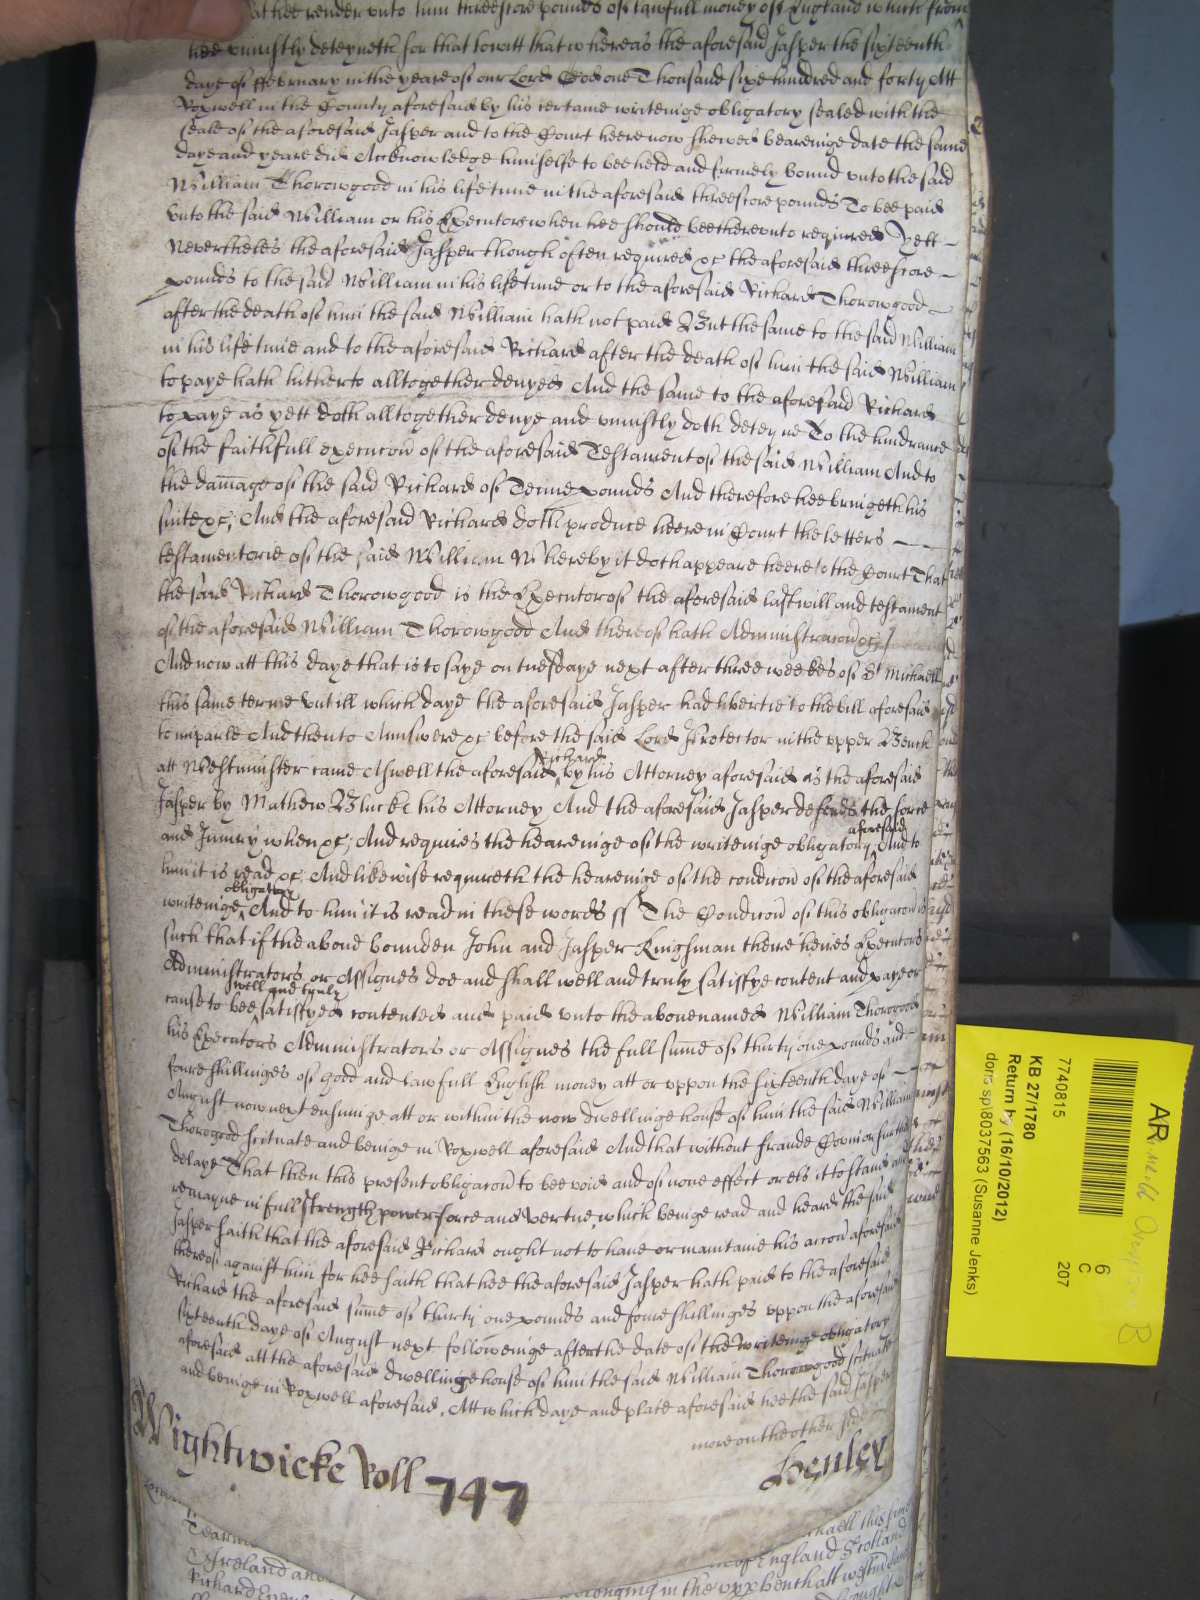 at hee render vnto him threescore pounds of lawfull money of England which from
hee vniustly deteyneth for that towitt that whereas the aforesaid Jasper the sixteenth
daye of ffebruary in the yeare of our Lord God one Thousand sixe hundred and forty Att
Roxwell in the County aforesaid by his certaine writeinge obligatory sealed with the
seale of the aforesaid Jasper and to the Court heere now shewed beareinge date the same
daye and yeare did Acknowledge himselfe to bee held and firmely bound vnto the said
William Thorowgood in his life time in the aforesaid threescore pounds To bee paid
vnto the said William or his Executors when hee should bee therevnto required Yett
Neverthelesse the aforesaid Jasper though often required &c the aforesaid threescore
pounds to the said William in his life time or to the aforesaid Richard Thorowgood
after the death of him the said William hath not paid But the same to the said William
in his life time and to the aforesaid Richard after the death of him the said William
to paye hath hitherto alltogether denyed And the same to the aforesaid Richard
to paye as yett doth alltogether denye and vniustly doth deteyne To the hindrance
of the faithfull execucon of the aforesaid Testament of the said William And to
the damage of the said Richard of Tenne pounds And therefore hee bringeth his
suite &c; And the aforesaid Richard doth produce heere in Court the letters
testamentorie of the said William Whereby it doth appeare heere to the Court That
the said Richard Thorowgood is the Executor of the aforesaid last will and testament
of the aforesaid William Thorowgood And thereof hath Administracon &c;
And now att this daye that is to saye on tuesdaye next after three weekes of St Michaell
this same terme vntill which daye the aforesaid Jasper had libertie to the bill aforesaid
to imparle And then to Answere &c before the said Lord Protector in the vpper Bench
att Westminster came Aswell the aforesaid Richard by his Attorney aforesaid as the aforesaid
Jasper by Mathew Blucke his Attorney And the aforesaid Jasper defends the force
and Iniury when &c; And requires the heareinge of the writeinge obligatory aforesaid And to
him it is read &c; And likewise requireth the heareinge of the condicon of the aforesaid
writeinge obligatory And to him it is read in these words ss The Condicon of this obligacon is
such that if the aboue bounden John and Jasper Kinghman theire heires Executors
Administrators or Assignes doe and shall well and truly satisfye content and paye or
cause to bee well and truly satisfyed contented and paid vnto the abouenamed William Thorogood
his Executors Administrators or Assignes the full summe of thirty one pounds and
foure shillinges of good and lawfull English money att or vppon the sixteenth daye of
August now next ensuinge att or within the now dwellinge house of him the said William
Thorogood scituate and beinge in Roxwell aforesaid And that without fraude Covin or further
delaye That then this present obligacon to bee void and of none effect or els it to stand and
remayne in full strength power force and vertue, which beinge read and heard the said
Jasper saith that the aforesaid Richard ought not to haue or maintaine his accon aforesaid
thereof against him for hee saith that hee the aforesaid Jasper hath paid to the aforesaid
Richard the aforesaid summe of thirty one pounds and foure shillinges vppon the aforesaid
sixteenth daye of August next followeinge after the date of the writeinge obligatory
aforesaid att the aforesaid dwellinge house of him the said William Thorowgood scituate
and beinge in Roxwell aforesaid, Att which daye and place aforesaid hee the said Jasper
more on the other side
Wightwicke Roll 747
Henley
Ireland and
of England Scotland
belonging in the vppbench att westm
AR
6
C
207
7740815
KB 27/1780
Return by (16/10/2012)
doris sp\8037563 (Susanne Jenks)